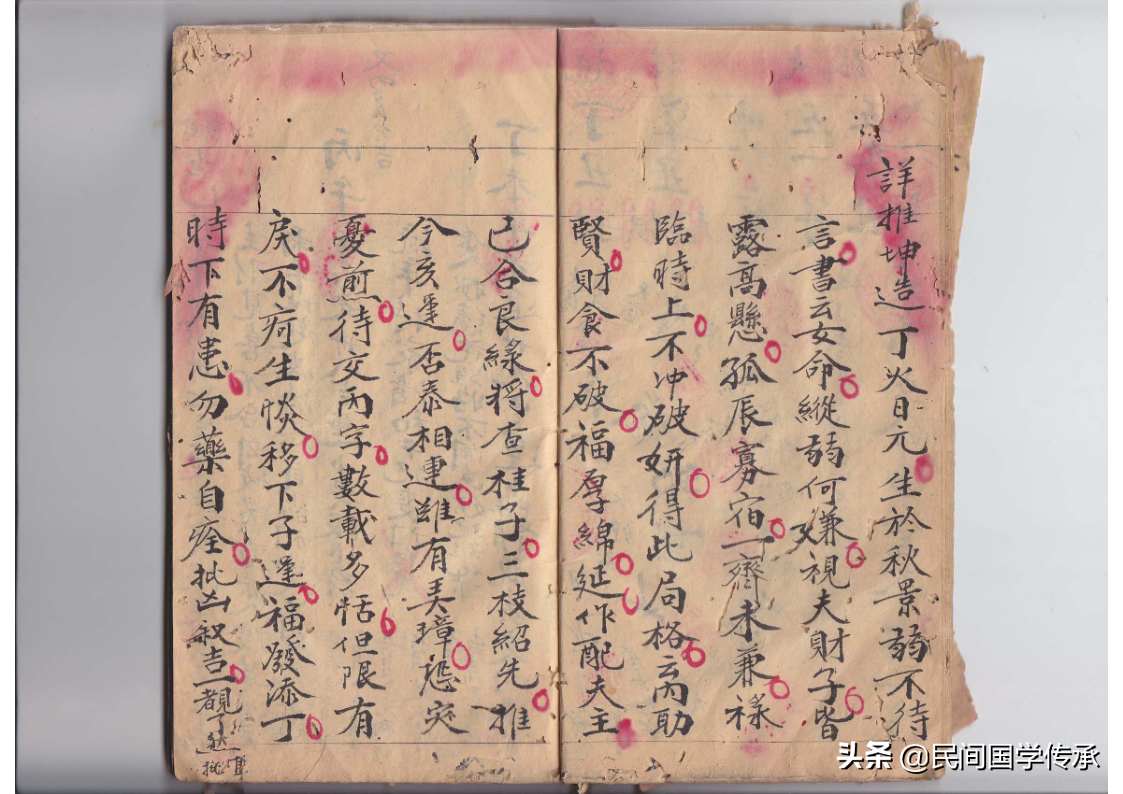 詳推坤造丁火日元生於秋景弱不待
言書云女命縱弱何嫌又視夫財子皆
露高懸孤辰寡宿一齊未兼祿
臨時上不冲破妍得此局格丙助
賢財食不破福厚綿延作配夫主
已合良緣將查桂子三枝紹先推
今亥運否泰相連雖有弄璋愁突
憂煎待交丙字數載多恬但限有
戾不疴生惔移下子運福發添丁
時下有患勿藥自痊批凶叙吉一覩了然
批单
头条 @民间国学传承